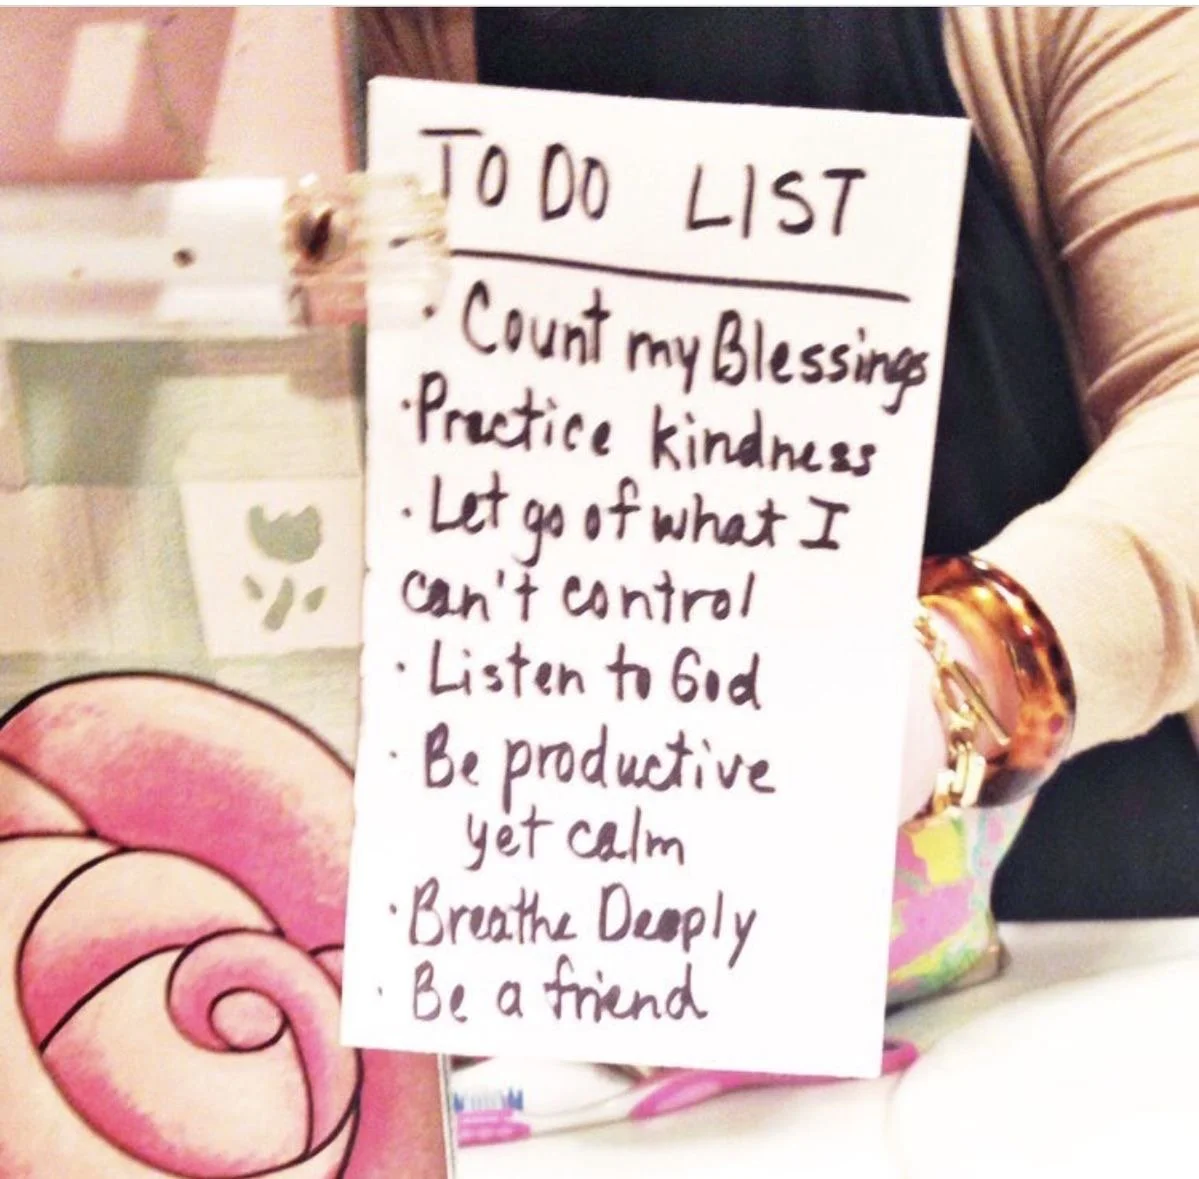 TO DO LIST
· Count my Blessings
· Practice kindness
· Let go of what I
can't control
· Listen to God
· Be productive
yet calm
· Breathe Deeply
· Be a friend